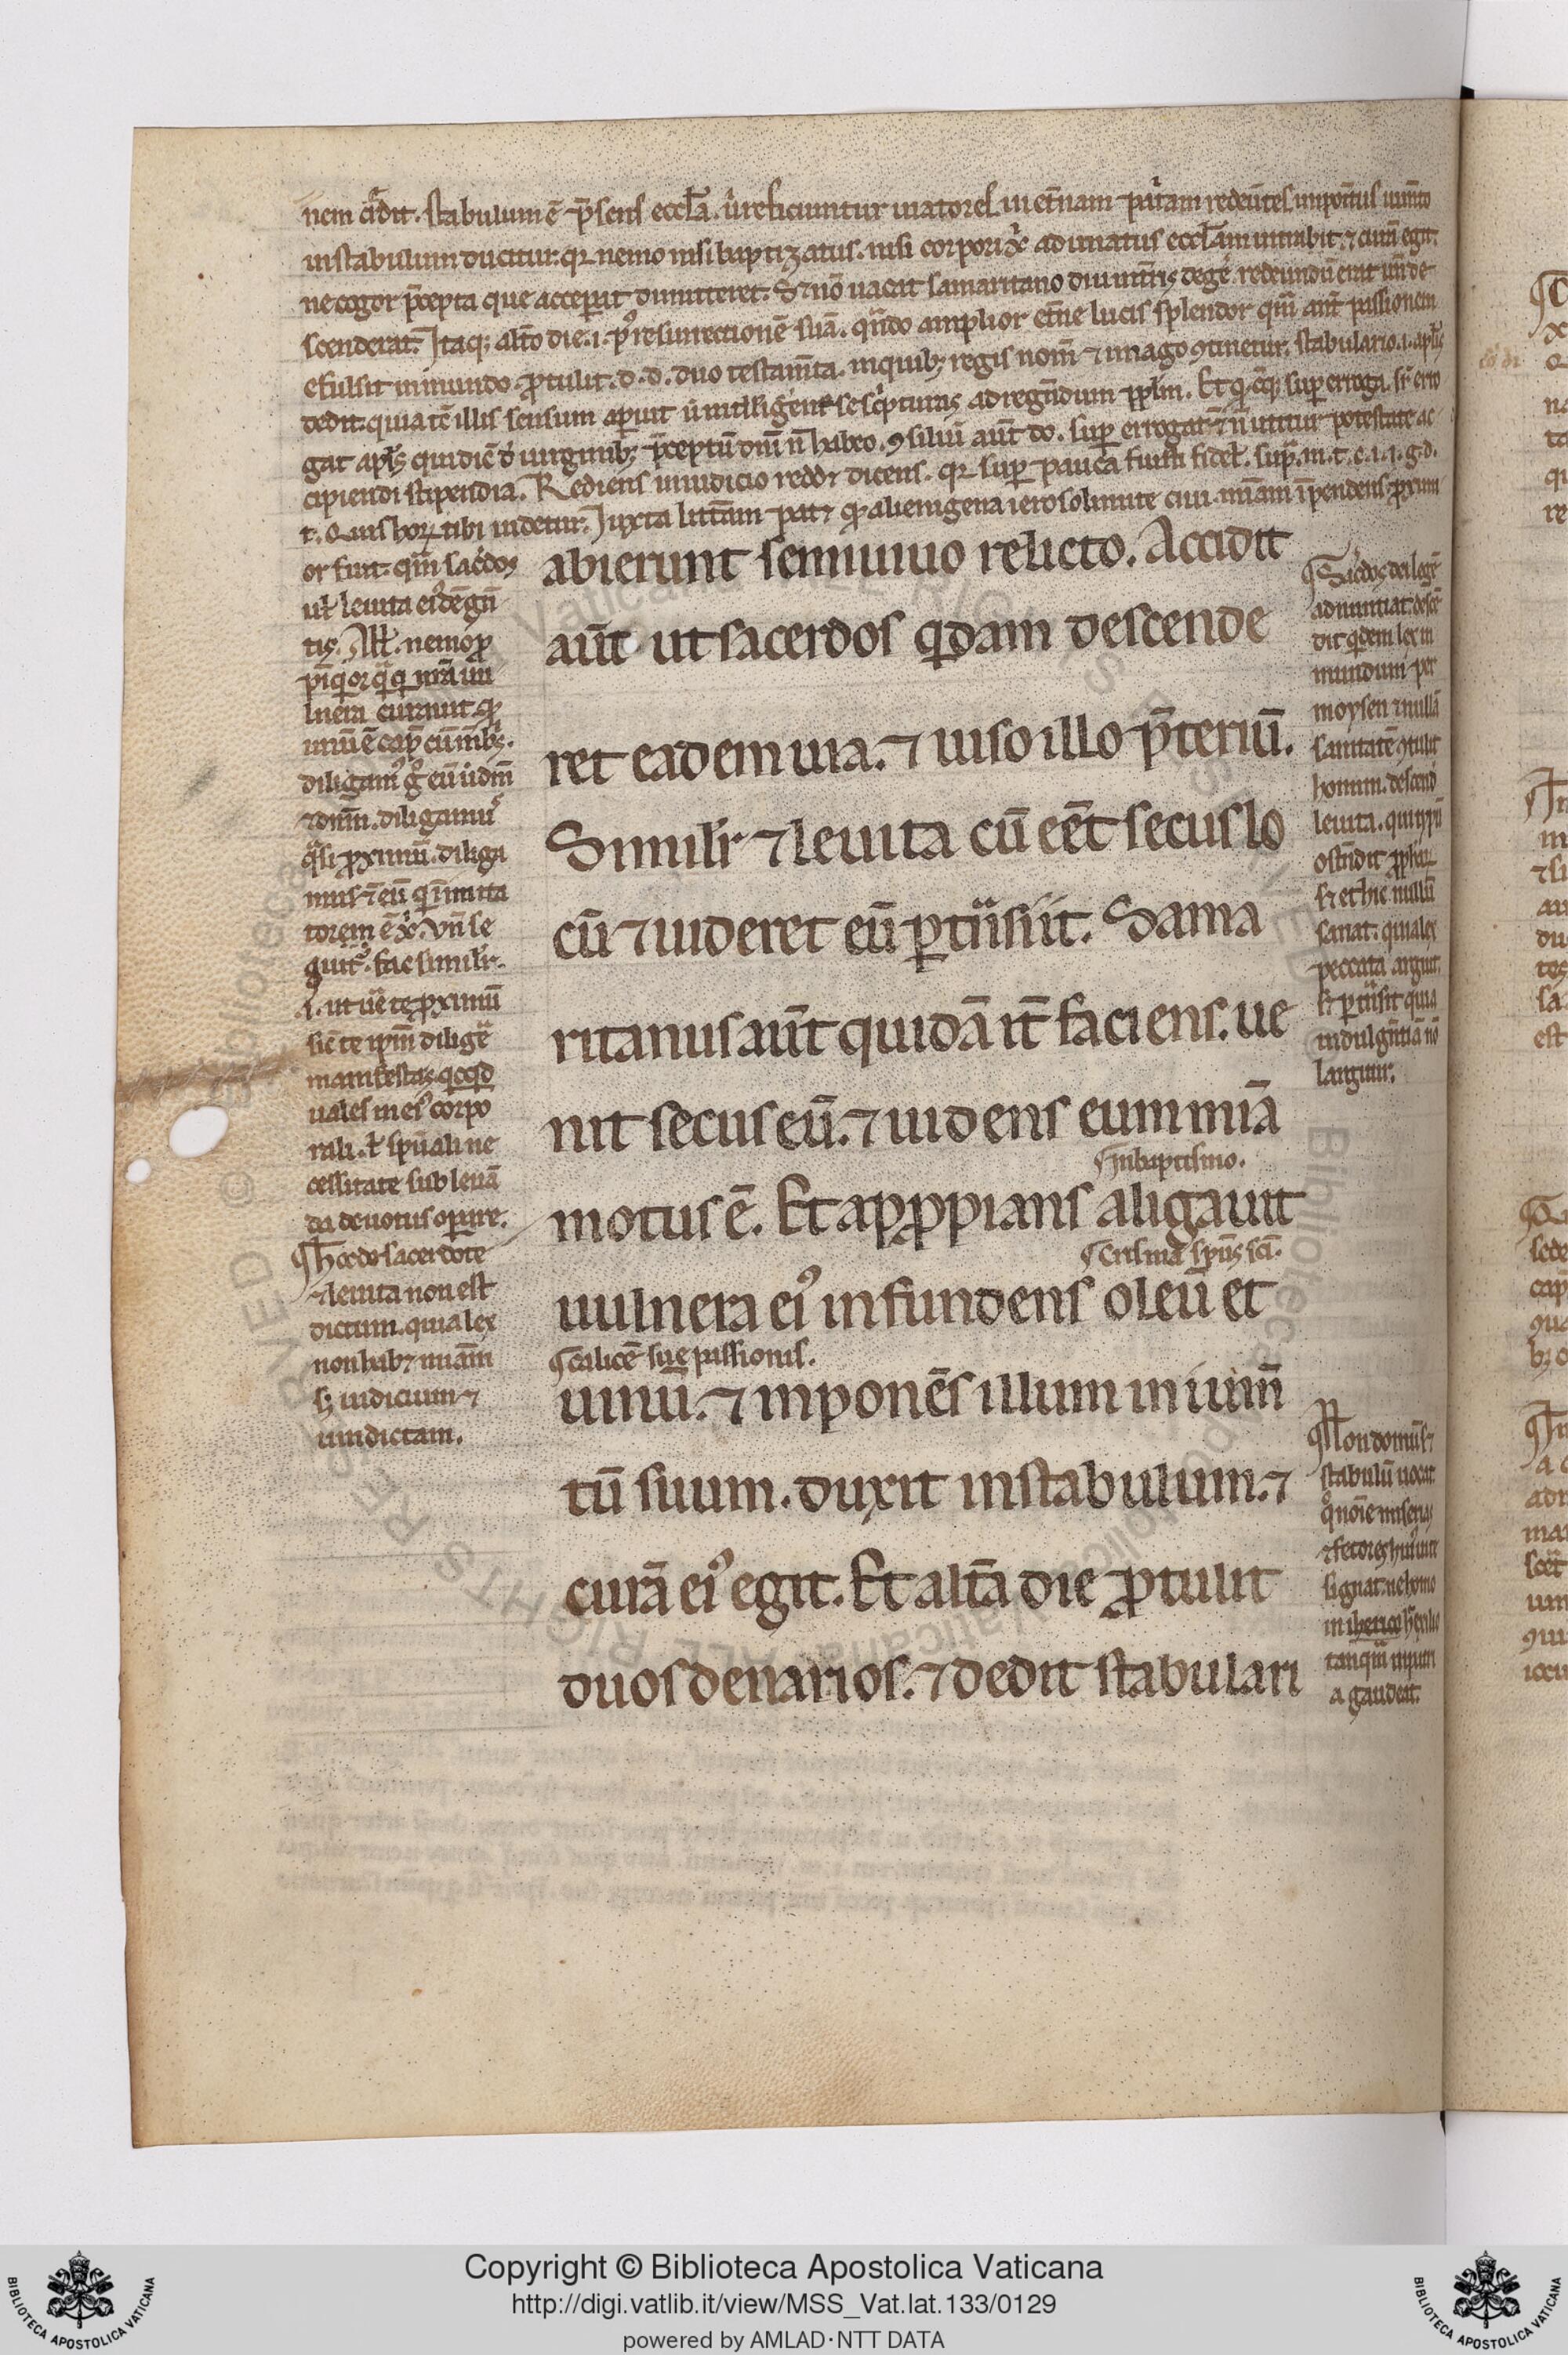 nem cͣdit. stabulum ē p̄sens eccl̄a. u̇ reficiuntur uiatores. in et̄nam pat̓am redeūtes. impoītus ium̄to
in stabulum ducitur. qꝛ nemo nisi baptizatus. nisi corpori xp̄i adunatus eccl̄am intrabit. ⁊ curā egit.
ne eg̓or p̄cepta que acceperat dimitteret. S; nō uacat samaritano diu in tr̄is degere. redeundū erat unde
scenderat. Itaq; alt̓a die .i. pꝰ resurrectionē suā. qn̄do amplior et̄ne lucis splendor qͣm an̄ passionem
efulsit in mundo. ꝓtulit .d. d. duo testam̄ta. in quib; regis nom̄ ⁊ imago ꝯtinetur. stabulario .i. apl̄is
dedit. quia tc̄ illis sensum aperuit ut intelligerent sc̓pturas ad regendum ppl̄m. Et qͦdcūq; super erroga. sr̄ erro
gat apl̄s qui dic̄ de uirginib; p̄ceptū dn̄i n̄ habeo. ꝯsiliū aut̄ do. super errogat ⁊ n̄ utitur potestate ac
cipiendi stipendia. Rediens in iudicio reddit dicens. qꝛ super pauca fuisti fidel̓. supͣ .m. t. c. i. i. g. d.
t. Quis horꝝ tibi uidetur. Iuxta litt̄am patꝫ qͦd alienigena ierosolimite ciui mīam īpendens ꝓxim
or fuit. qͣm sac̓dos
ul̓ leuita eiꝰdē gen
tis. All̓. nemo ꝓ
pīqͥor qͣ qͥ nr̄a uu
lnera curauit. qꝛ
unū ē cap̄ cū mēbr̓.
diligamꝰ gͦ eū ut dn̄m
⁊ dn̄m. diligamus
qͣsi ꝓximū. diliga
mus ⁊ eū qͥ imita
tor em̄ ē xp̄i. Vn̄ se
quitͬ. fac simil̓r.
.i. ut uere te ꝓximū
sic̄ te ip̄m dilig̓e
manifestas. qͥcqͥd
uales in eiꝰ corpo
rali. l̓ spūali ne
cessitate subleuā
da deuotus operare.
¶ hoc de sacerdote
⁊ leuita non est
dictum. quia lex
non habꝫ mīam
s; iudicium ⁊
uindictam.
abierunt seminiuo relicto. Accidit
aūt ut sacerdos qͥdam descende
ret eadem uia. ⁊ uiso illo p̄teriū.
Simil̓r ⁊ leuita cū eēt secus lo
cū ⁊ uideret eū ꝑtͣnsiit. Sama
ritanus aūt quidā it̄ faciens. ue
nit secus eū. ⁊ uidens eum mīa
¶ In baptismo.
motus ē. Et appꝓpians aligauit
¶ Crisma sp̄us sc̄i.
uulnera eiꝰ infundens oleū et
¶ calicē sue passionis.
uinū. ⁊ inponēs illum in ium̄
tū suum. duxit in stabulum. ⁊
curā eiꝰ egit. Et alt̄a die ꝓtulit
duos denarios. ⁊ dedit stabulari
¶ Sac̓dos dei legē
adnuntiat. descē
dit qͥdem lex in
mundum per
moysen ⁊ nullā
sanitatē ꝯtulit
homini. descend̓
leuita. qui typū
ostendit ꝓphetarꝝ
s; et hic nullū
sanat. quia lex
peccata arguit.
s; ꝑtͣnsit quia
indulgentiā nō
largitur.
¶ Non domū s;
stabulū uocat
qͦ noīe miserias
⁊ fetores huiꝰ uite
signat. ne homo
in iherico h̓ exilio
tanquā in patri
a gaudeat.
Copyright © Biblioteca Apostolica Vaticana
http://digi.vatlib.it/view/MSS_Vat.lat.133/0129
powered by AMLAD·NTT DATA
BIBLIOTECA APOSTOLICA VATICANA
BIBLIOTECA APOSTOLICA VATICANA